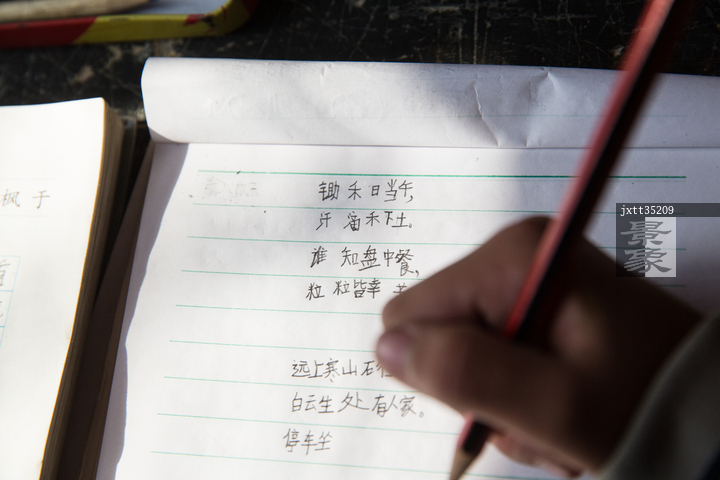 枫于
锄禾日当午,
汗滴禾下土。
谁知盘中餐,
粒粒皆幸
远上寒山石
白云生处有人家。
停车坐
jxtt35209
景象